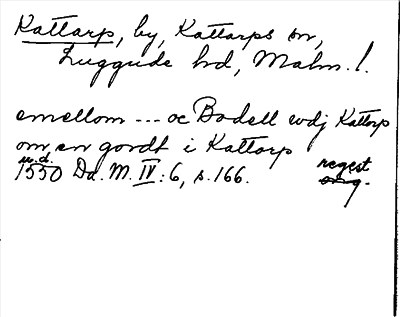 Kattarp, by, Kattarps sn,
Luggude hd, Malm. l.
emellom --- oc Bodell wdj Kattorp
om en gordt i Kattorp
u.d.
1550 Da. M. IV: 6, s. 166. regest
orig.